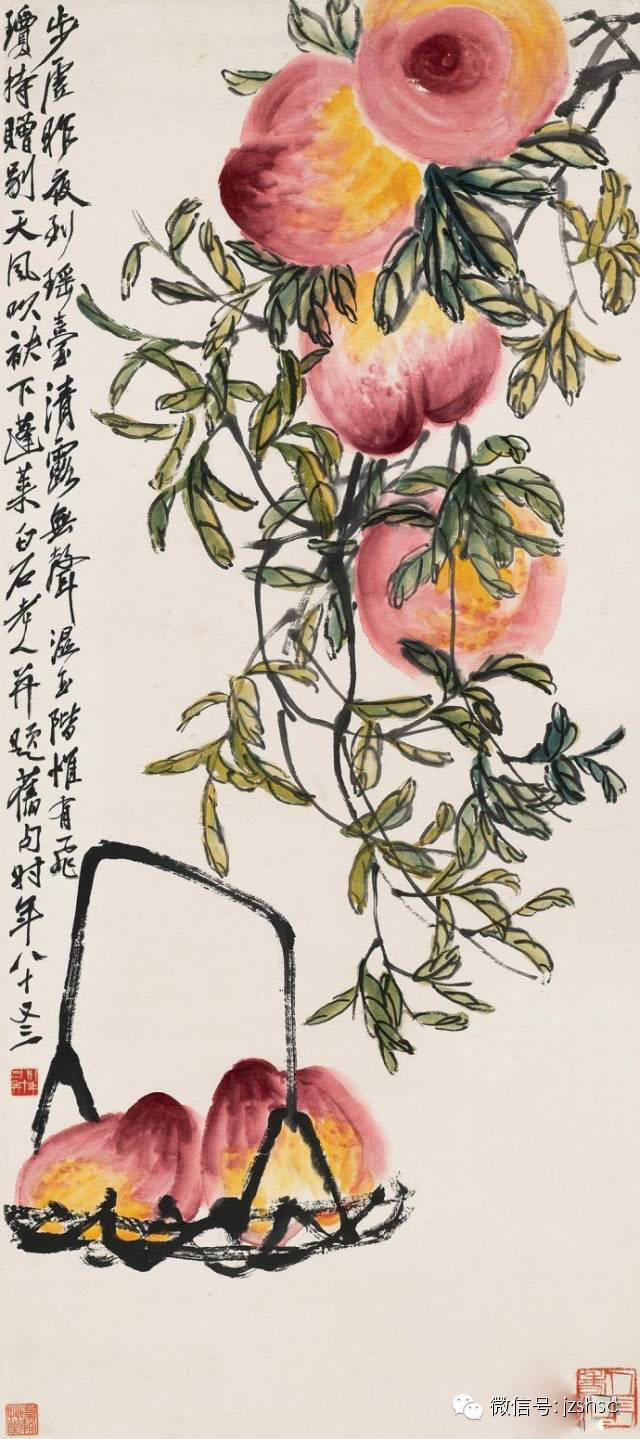 步虚昨夜到瑶臺清露無聲濕玉階惟有飛
瓊持贈别天風吹袂下蓬莱白石老人并題舊句时年八十又三
微信号: jzshsc